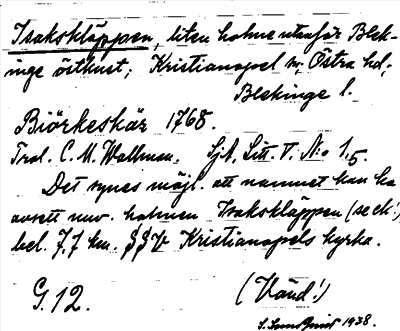 Isakskläppen, liten holme utanför Blek-
inge östkust; Kristianopel sn, Östra hd,
Blekinge l.
Biörkeskär 1768.
Trol. C. M. Wallman. SjK, Litt. V. No 1,5.
Det synes möjl. att namnet kan ha
avsett nuv. holmen Isakskläppen (se ek!)
bel. 7,7 km. SSV Kristianopels kyrka.
G. 12. (Vänd!)
S. 1938.